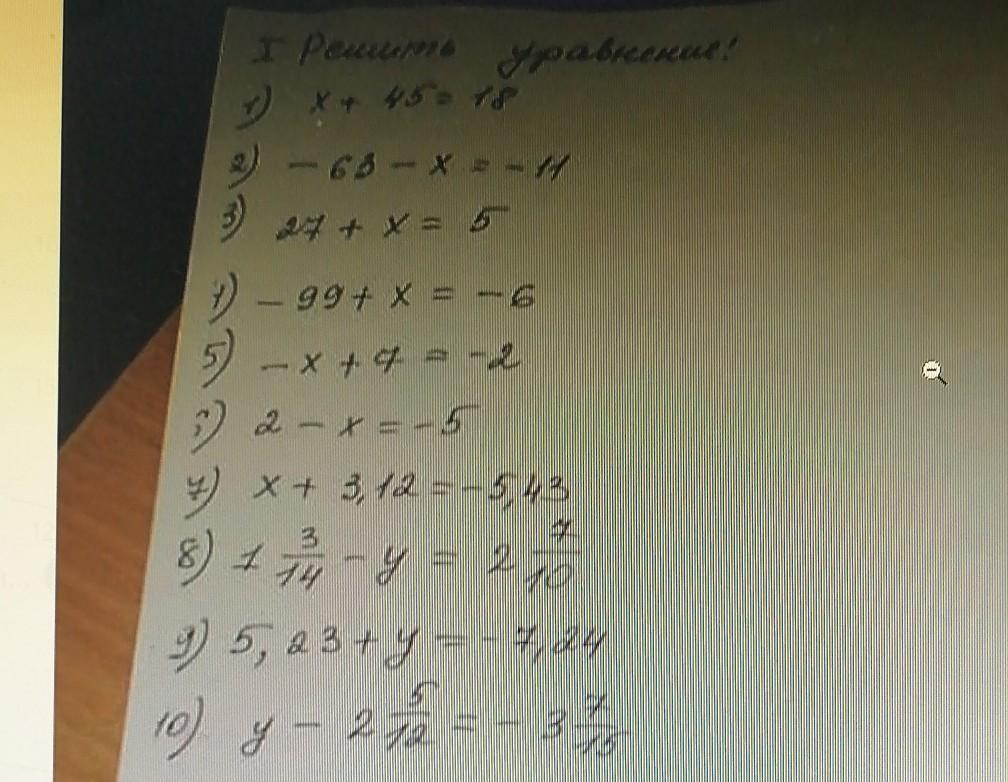 I Решить уравнение!
1) x + 45 = 18
2) - 63 - x = - 11
3) 27 + x = 5
4) - 99 + x = - 6
5) - x + 7 = - 2
6) 2 - x = - 5
7) x + 3,12 = - 5,43
8) 1 3/14 - y = 2 7/10
9) 5,23 + y = - 7,24
10) y - 2 5/12 = - 3 7/15